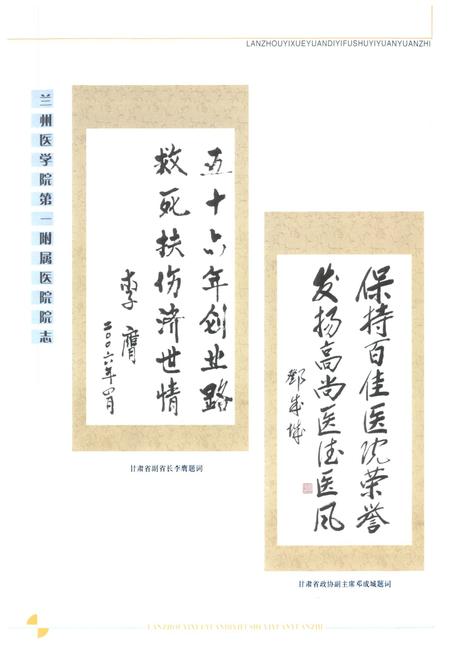 LANZHOUYIXUEYUANDIYIFUSHUYIYUANYUANZHI
兰州医学院第一附属医院院志
五十六年创业路
救死扶伤济世情
李膺
二〇〇六年四月
甘肃省副省长李膺题词
保持百佳医院荣誉
发扬高尚医德医风
邓成城
甘肃省政协副主席邓成城题词
LANZHOUYIXUEYUANDIYIFUSHUYIYUANYUANZHI